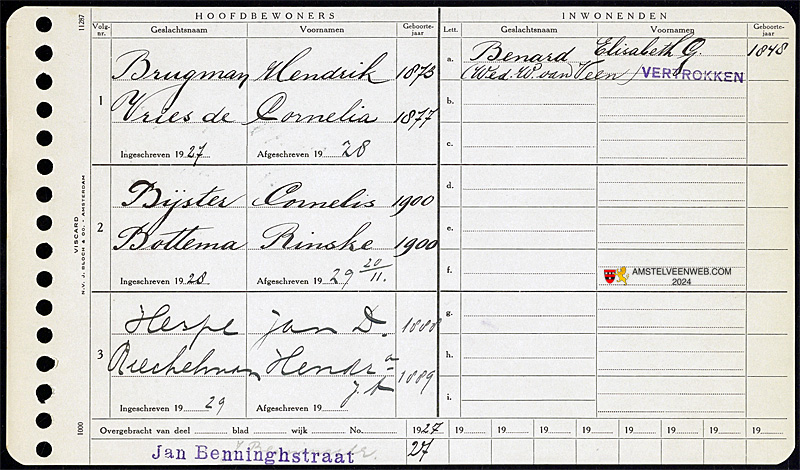 HOOFDBEWONERS
INWONENDEN
11287
Volg-nr. Geslachtsnaam Voornamen Geboorte-jaar
Lett. Geslachtsnaam Voornamen Geboorte-jaar
1
Brugman Hendrik 1873
Vries de Cornelia 1877
Ingeschreven 1927 Afgeschreven 1928
2
Bijster Cornelis 1900
Bottema Rinske 1900
Ingeschreven 1928 Afgeschreven 1929 20/11.
3
Hespe Jan D. 1888
Riechelman Hendr a 1889
Ingeschreven 1929 Afgeschreven 19
a. Benard Elisabeth G. 1848
(Wed. W. van Veen) VERTROKKEN
b.
c.
d.
e.
f.
AMSTELVEENWEB.COM
2024
g.
h.
i.
VISCARD
N.V. J. BLOCH & CO. - AMSTERDAM
1000
Overgebracht van deel blad wijk No. 1927 19 19 19 19 19 19 19 19
Jan Benninghstraat 27